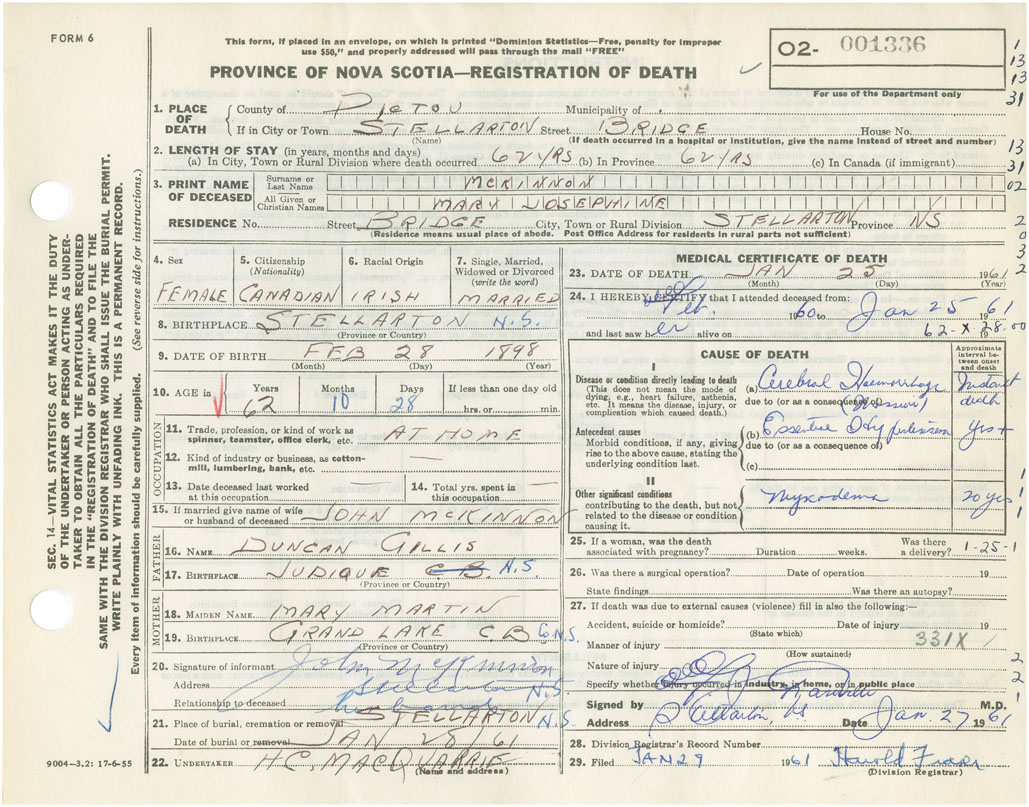 FORM 6
This form, if placed in an envelope, on which is printed "Dominion Statistics—Free, penalty for improper
use $50," and properly addressed will pass through the mail "FREE"
PROVINCE OF NOVA SCOTIA—REGISTRATION OF DEATH
02- 001336
For use of the Department only
1
13
13
31
13
31
02
2
0
3
2
1. PLACE OF DEATH
County of PICTOU Municipality of
If in City or Town STELLARTON Street BRIDGE House No.
(Name) (If death occurred in a hospital or institution, give the name instead of street and number)
2. LENGTH OF STAY (in years, months and days)
(a) In City, Town or Rural Division where death occurred 62 YRS (b) In Province 62 YRS (c) In Canada (if immigrant)
3. PRINT NAME OF DECEASED
Surname or Last Name MCKINNON
All Given or Christian Names MARY JOSEPHINE
RESIDENCE No. Street BRIDGE City, Town or Rural Division STELLARTON Province NS
(Residence means usual place of abode. Post Office Address for residents in rural parts not sufficient)
4. Sex
FEMALE
5. Citizenship
(Nationality)
CANADIAN
6. Racial Origin
IRISH
7. Single, Married,
Widowed or Divorced
(write the word)
MARRIED
8. BIRTHPLACE STELLARTON N.S.
(Province or Country)
9. DATE OF BIRTH FEB 28 1898
(Month) (Day) (Year)
10. AGE in
Years Months Days If less than one day old
62 10 28 hrs. or min.
OCCUPATION
11. Trade, profession, or kind of work as
spinner, teamster, office clerk, etc. AT HOME
12. Kind of industry or business, as cotton-
mill, lumbering, bank, etc. —
13. Date deceased last worked
at this occupation
14. Total yrs. spent in
this occupation —
15. If married give name of wife
or husband of deceased JOHN MCKINNON
FATHER
16. NAME DUNCAN GILLIS
17. BIRTHPLACE JUDIQUE C.B. N.S.
(Province or Country)
MOTHER
18. MAIDEN NAME MARY MARTIN
19. BIRTHPLACE GRAND LAKE C B Co N.S.
(Province or Country)
20. Signature of informant John McKinnon
Address Stellarton N.S
Relationship to deceased husband
21. Place of burial, cremation or removal STELLARTON N.S
Date of burial or removal JAN 28 61
22. UNDERTAKER H.C. MACQUARRIE
(Name and address)
MEDICAL CERTIFICATE OF DEATH
23. DATE OF DEATH JAN 25 1961
(Month) (Day) (Year)
24. I HEREBY CERTIFY that I attended deceased from:
Feb. 1960 to Jan 25 1961
and last saw her alive on 19
62-X-28-00
CAUSE OF DEATH
Approximate
interval be-
tween onset
and death
I
Disease or condition directly leading to death
(This does not mean the mode of
dying, e.g., heart failure, asthenia,
etc. It means the disease, injury, or
complication which caused death.)
(a) Cerebral Haemorrhage Instant
due to (or as a consequence of) (Massive) death
Antecedent causes
Morbid conditions, if any, giving
rise to the above cause, stating the
underlying condition last.
(b) Essential Hypertension yrs +
due to (or as a consequence of)
(c)
II
Other significant conditions
contributing to the death, but not
related to the disease or condition
causing it.
Myxodema 20 yrs
1
1
1
25. If a woman, was the death
associated with pregnancy? Duration weeks. Was there
a delivery? 1-25-1
26. Was there a surgical operation? Date of operation 19
State findings Was there an autopsy?
27. If death was due to external causes (violence) fill in also the following:—
Accident, suicide or homicide? Date of injury 19
(State which)
Manner of injury 331X
(How sustained)
Nature of injury
Specify whether injury occurred in industry, in home, or in public place
2
2
1
Signed by M.D.
Address Stellarton, NS Date Jan. 27 1961
28. Division Registrar's Record Number
29. Filed JAN 29 1961 Harold Fraser
(Division Registrar)
SEC. 14—VITAL STATISTICS ACT MAKES IT THE DUTY
OF THE UNDERTAKER OR PERSON ACTING AS UNDER-
TAKER TO OBTAIN ALL THE PARTICULARS REQUIRED
IN THE "REGISTRATION OF DEATH" AND TO FILE THE
SAME WITH THE DIVISION REGISTRAR WHO SHALL ISSUE THE BURIAL PERMIT.
WRITE PLAINLY WITH UNFADING INK. THIS IS A PERMANENT RECORD.
Every item of information should be carefully supplied. (See reverse side for instructions.)
9004—3.2: 17-6-55